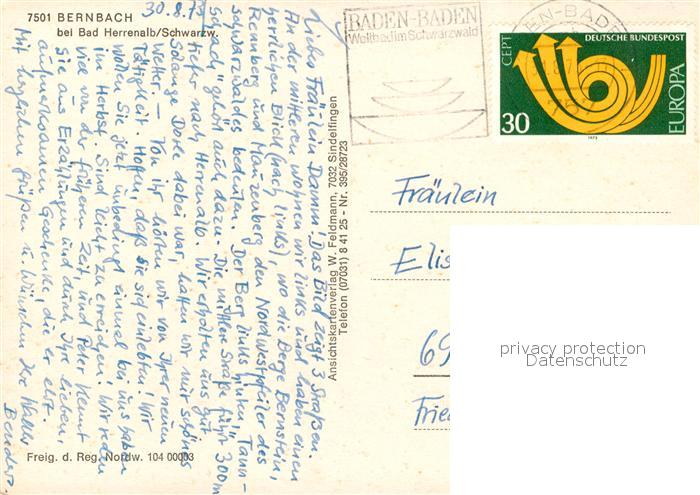 7501 BERNBACH
bei Bad Herrenalb/Schwarzw.
30.8.73
Liebes Fräulein Damm! Das Bild zeigt 3 Straßen.
An der mittleren wohnen wir links und haben einen
herrlichen Blick (nach links), wo die Berge Bernstein,
Rennberg und Mauzenberg den Nordwestpfeiler des
Schwarzwaldes bedeuten. Der Berg links hinten, "Tann-
schach" gehört auch dazu. Die mittlere Straße führt 300m
tiefer nach Herrenalb. Wir erholten uns gut
Solange Dore dabei war, hatten wir nur schönes
Wetter. – Von ihr hörten wir von Ihrer neuen
Tätigkeit. Hoffen, daß Sie sich einlebten! Wir
wollen Sie jetzt unbedingt einmal bei uns haben
im Herbst. Sind leicht zu erreichen! Wir reden
viel von der früheren Zeit, und Peter kennt
Sie aus Erzählungen und durch Ihre lieben,
aufmerksamen Geschenke, die er erhielt.
Mit herzlichen Grüßen u. Wünschen Ihre
Bender.
Freig. d. Reg. Nordw. 104 00003
Ansichtskartenverlag W. Feldmann, 7032 Sindelfingen
Telefon (07031) 8 41 25 - Nr. 395/28723
BADEN-BADEN
Weltbad im Schwarzwald
EN-BAD
757
CEPT
DEUTSCHE BUNDESPOST
EUROPA
30
1973
Fräulein
Elis
69
Fried
privacy protection
Datenschutz